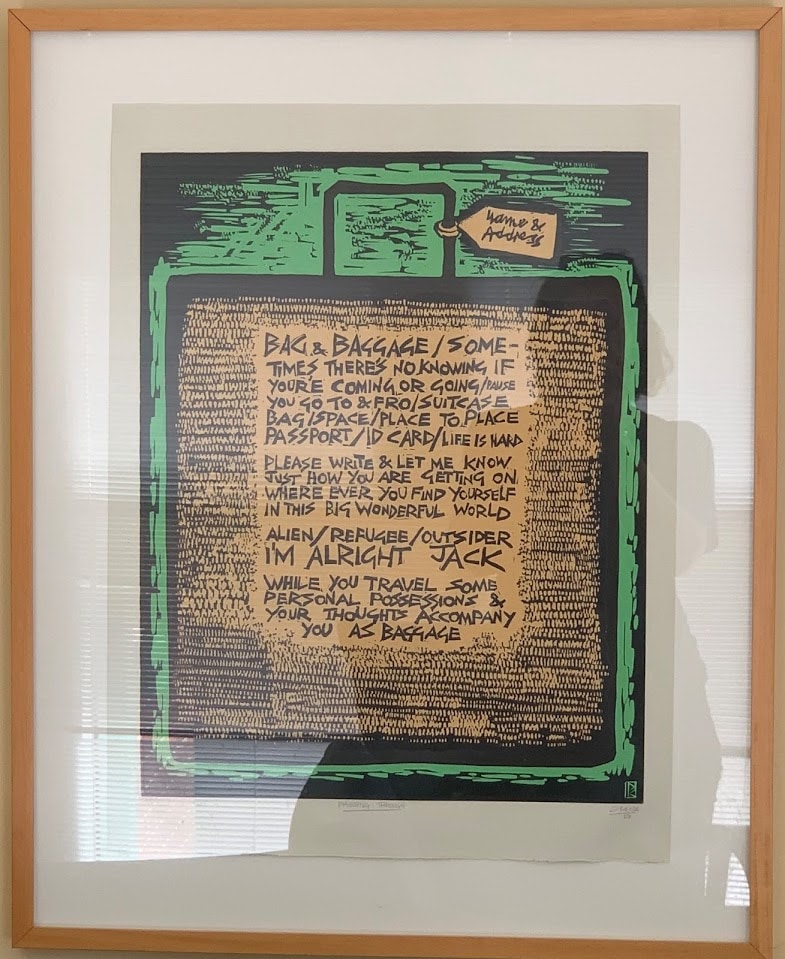 Name &
Address
BAG & BAGGAGE / SOME-
TIMES THERE'S NO KNOWING IF
YOUR'E COMING OR GOING/PAUSE
YOU GO TO & FRO/SUITCASE
BAG/SPACE/PLACE TO PLACE
PASSPORT/ID CARD/LIFE IS HARD
PLEASE WRITE & LET ME KNOW
JUST HOW YOU ARE GETTING ON
WHERE EVER YOU FIND YOURSELF
IN THIS BIG WONDERFUL WORLD
ALIEN/REFUGEE/OUTSIDER
I'M ALRIGHT JACK
WHILE YOU TRAVEL SOME
PERSONAL POSSESSIONS &
YOUR THOUGHTS ACCOMPANY
YOU AS BAGGAGE